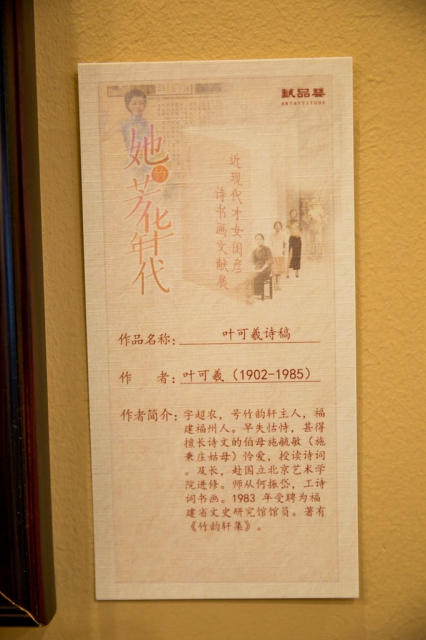 她的芳华年代
近现代才女闺彦
诗书画文献展
作品名称：叶可羲诗稿
作 者：叶可羲（1902-1985）
作者简介：字超农，号竹韵轩主人，福
建福州人。早失怙恃，甚得
擅长诗文的伯母施毓敏（施
秉庄姑母）怜爱，授读诗词
。及长，赴国立北京艺术学
院进修。师从何振岱，工诗
词书画。1983 年受聘为福
建省文史研究馆馆员。著有
《竹韵轩集》。